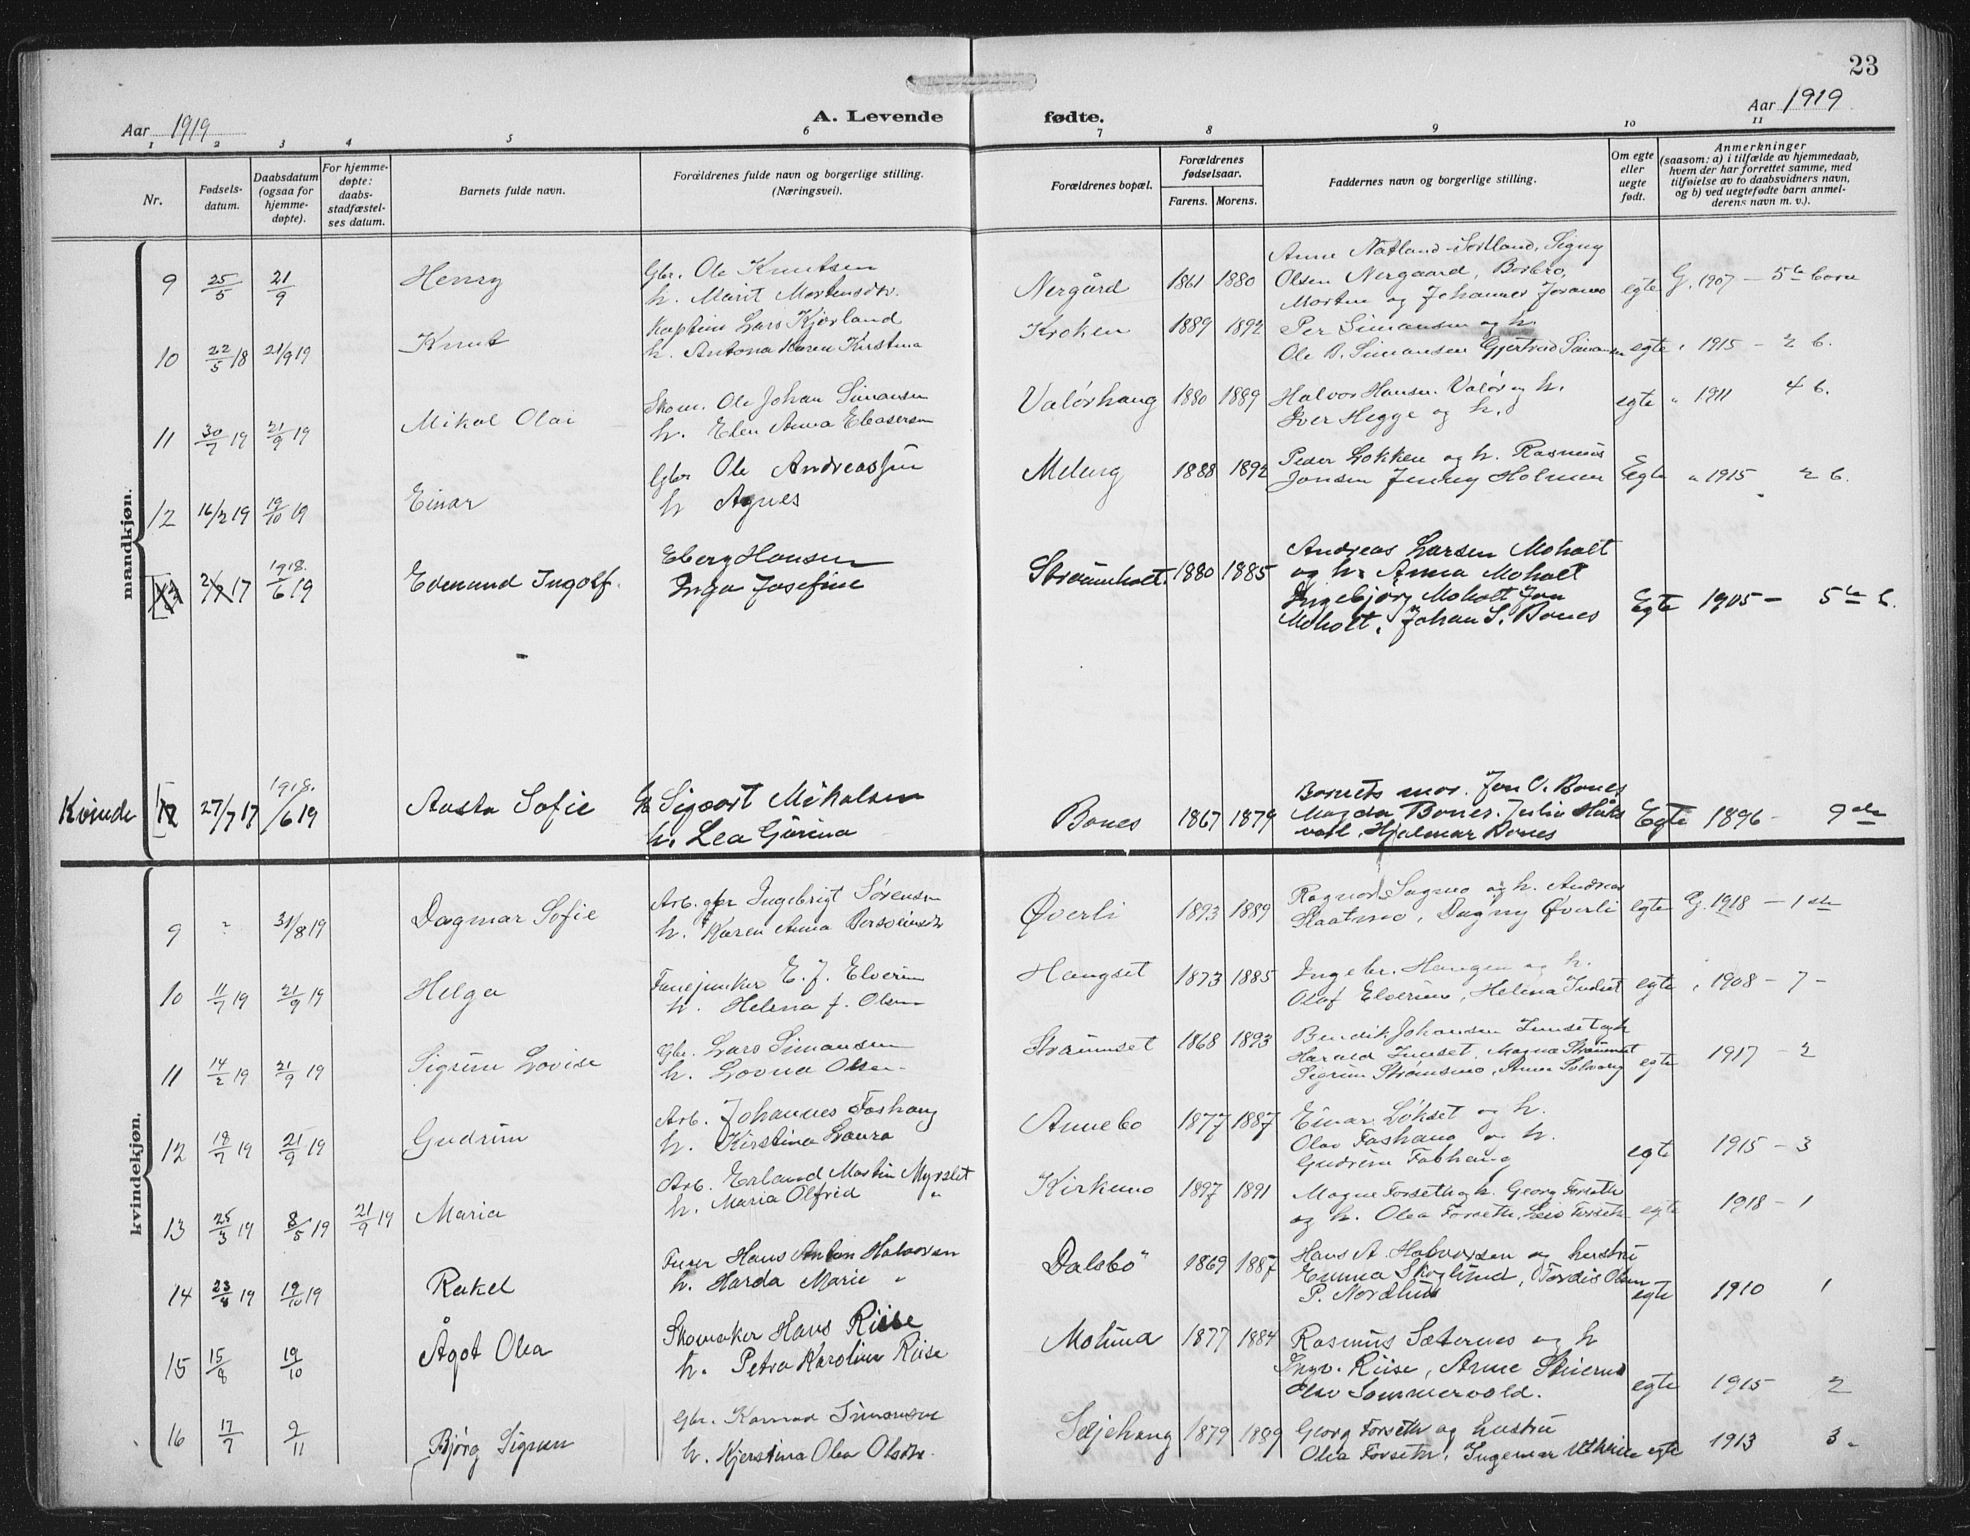 23
Aar 1919
A. Levende fødte.
Aar 1919
1 2 3 4 5 6 7 8 9 10 11
Nr.
Fødsels-
datum.
Daabsdatum
(ogsaa for
hjemme-
døpte).
For hjemme-
døpte:
daabs-
stadfæstel-
ses datum.
Barnets fulde navn.
Forældrenes fulde navn og borgerlige stilling.
(Næringsvei).
Forældrenes bopæl.
Forældrenes
fødselsaar.
Farens. Morens.
Faddernes navn og borgerlige stilling.
Om egte
eller
uegte
født.
Anmerkninger
(saasom: a) i tilfælde av hjemmedaab,
hvem der har forrettet samme, med
tilføielse av to daabsvidners navn,
og b) ved uegtefødte barn anmel-
derens navn m. v.).
mandkjøn.
9 25/5 21/9 Henry
Gbr. Ole Knutsen
h. Marit Mortensdtr.
Nergård 1861 1880
Anne Natland Sortland, Signy
Olsen Nergaard, Borbro,
Morten og Johannes
egte G. 1907 – 5te barn
10 22/5 18 21/9 19 Knut
Kaptein Lars Kjørland
h. Antona Karen Kirstina
Kroken 1889 1892
Per Simonsen og h.
Ole B. Simonsen Gjertrud Simonsen
egte " 1915 – 2 b.
11 30/7 19 21/9 19 Mikal Olai
Skom. Ole Johan Simonsen
h. Elen Anna Eleasersen
Valørhaug 1880 1889
Halvor Hansen Valør og h.
Iver Hegge og h.
egte " 1911 4 b.
12 16/2 19 19/10 19 Einar
Gbr Ole Andreassen
h Agnes
Meleng 1888 1892
Peder Løkken og h. Rasmus
Jonsen Jenny Holmen
Egte " 1915 2 b.
2/7 17 1918. /6 19 Edmund Ingolf.
Eberg Hansen
Inga Josefine
Strømholt. 1880 1885
Andreas Larsen Moholt
og h. Anna Moholt
Ingebjørg Moholt Jon
Moholt, Johan S. Bones
Egte 1905 – 5te b.
Kvinde 12 27/7 17 1918. /6 19 Aasta Sofie
Sigvart Mikalsen
h. Lea Gurina
Bones 1867 1879
Barnets mor. Jon O. Bones
Magda Bones. Julia Håk
voll, Hjalmar Bones
Egte 1896 – 9de
kvindekjøn.
9 ? 31/8 19 Dagmar Sofie
Arb. Ingebrigt Sørensen
h. Karen Anna
Øverli 1893 1889
Ragnar Sagmo og h. Andreas
Slaatmo, Dagny Øverli
egte G. 1918 – 1ste
10 11/7 19 21/9 19 Helga
Fanejunker E. J. Elverum
h. Helena f. Olsen
Haugset 1873 1885
Ingebr. Haugen og h.
Olaf Elverum, Helena
egte " 1908 – 7 –
11 14/2 19 21/9 19 Sigrun Lovise
Gbr. Lars Simonsen
h. Lovna Olsen
Strømset 1868 1893
Bendik Johansen Innset og h
Harald Innset. Magna Strømset
Sigrun Strømsmo, Anna Solvang
egte 1917 – 2
12 18/7 19 21/9 19 Gudrun
Arb. Johannes Foshaug
h. Kirstina Laura
Annebo 1877 1887
Einar Løkset og h.
Olav Foshaug og h.
Gudrun Foshaug
egte 1915 – 3
13 25/3 19 8/5 19 21/9 19 Maria
Arb. Erland Martin Myrslet
h. Maria Olfrid "
Kirkemo 1897 1891
Magne Forseth og h. Georg Forseth
og h. Olea Forseth, Forseth
egte 1918 – 1
14 23/8 19 19/10 19 Rakel
Furer Hans Anton Halvorsen
h. Harda Marie "
Dalsbo 1869 1887
Hans A. Halvorsen og hustru
Emma Skoglund, Tordis Olsen
P. Nordhus
egte 1910 1
15 15/8 19/10 Ågot Olea
Skomaker Hans Riise
h. Petra Karoline Riise
Molund 1877 1884
Rasmus Sæternes og h
Ingv. Riise, Anne
Olav Sommervold.
egte 1915 2
16 17/7 9/11 Bjørg Sigrun
Gbr. Konrad Simonsen
h. Kjerstina Olea Olsdtr.
Seljehaug 1879 1889
Georg Forseth og hustru
Olea Forseth, Ingemar
egte 1913 3 –